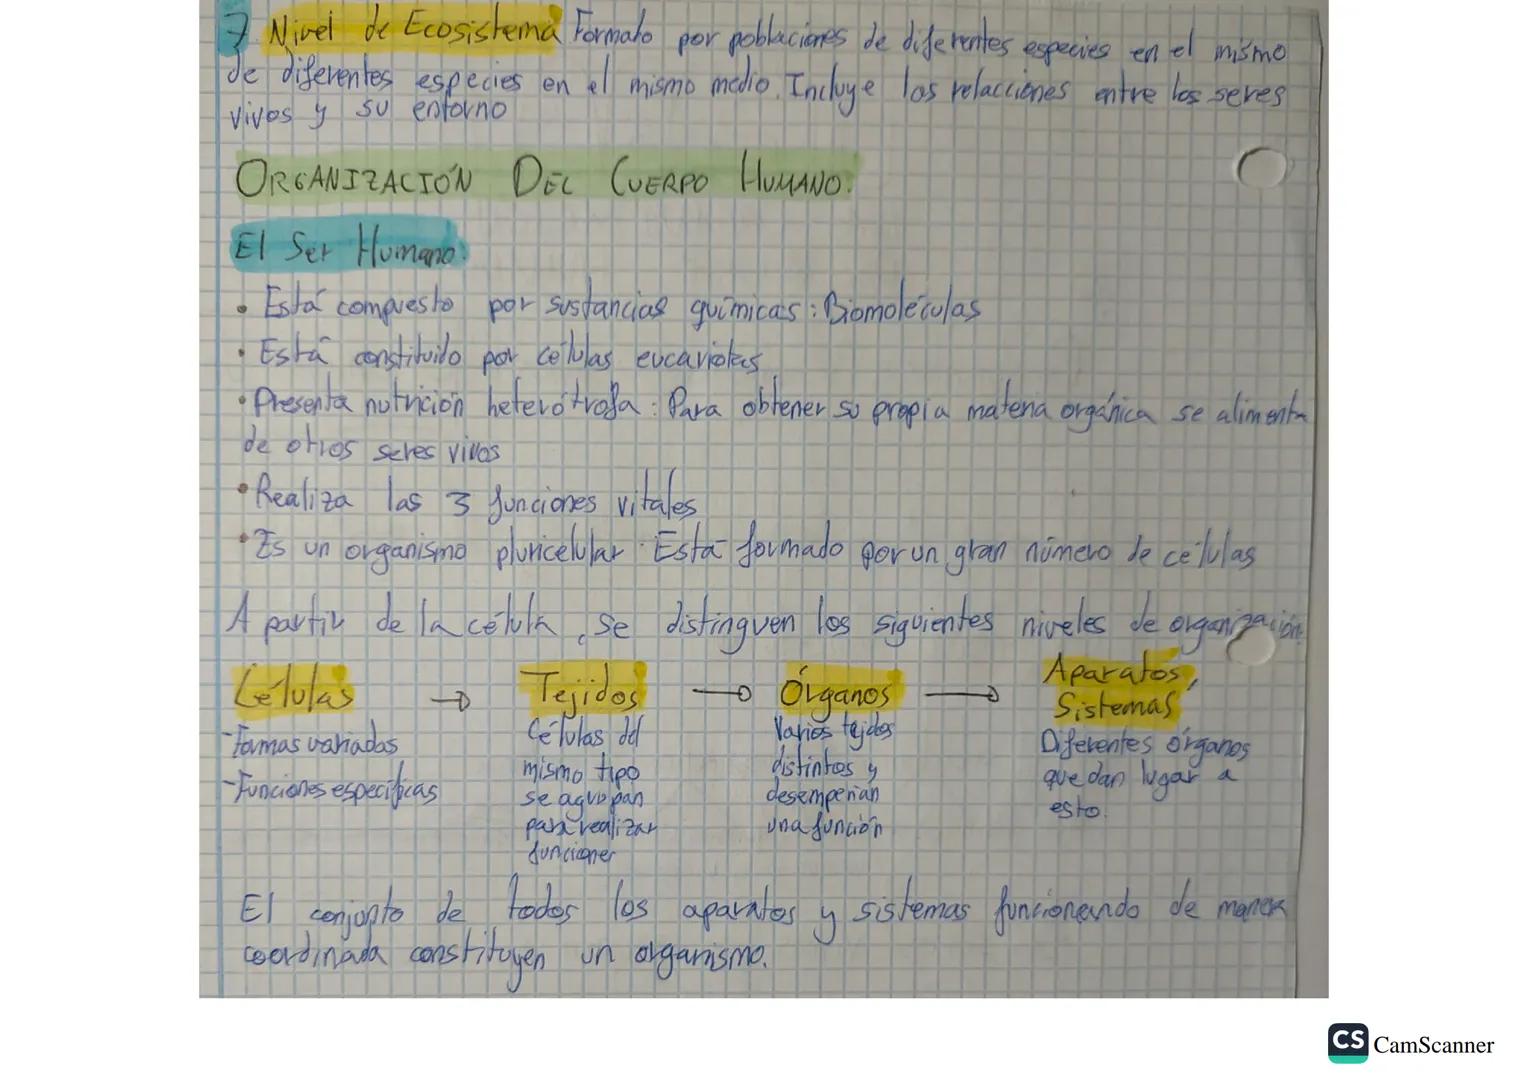 7 Nivel de Ecosistema Formado por poblaciones de diferentes especies en el mismo
de diferentes especies en el mismo medio. Incluye las relacciones entre los seres
vivos y su entorno
ORGANIZACIÓN DEL CUERPO HUMANO.
El Ser Humano:
• Está compuesto por sustancias químicas: Biomoléculas
• Está constituido por células eucariotas
• Presenta nutrición heterótrofa: Para obtener su propia materia orgánica se alimenta
de otros seres vivos
• Realiza las 3 funciones vitales
• Es un organismo pluricelular. Está formado por un gran número de células
A partir de la célula, se distinguen los siguientes niveles de organización
Células → Tejidos → Órganos → Aparatos,
Sistemas
-Formas variadas
-Funciones específicas
Células del
mismo tipo
se agrupan
para realizar
funcioner
Varios tejidos
distintos y
desempeñan
una función
Diferentes órganos
que dan lugar a
esto.
El conjunto de todos los aparatos y sistemas funcioneando de manera
coordinada constituyen un organismo.
CS CamScanner